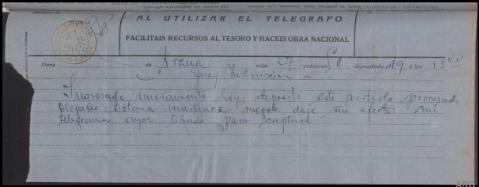 AL UTILIZAR EL TELEGRAFO
FACILITAIS RECURSOS AL TESORO Y HACEIS OBRA NACIONAL
Para de núm. 27 palabras depositado 19 a las
Juez Instrucción a
Ingresado nuevamente hoy deposito este partido procesado
Olegario Martinez ruegole deje sin efecto mi
telegrama ayer librado para captura